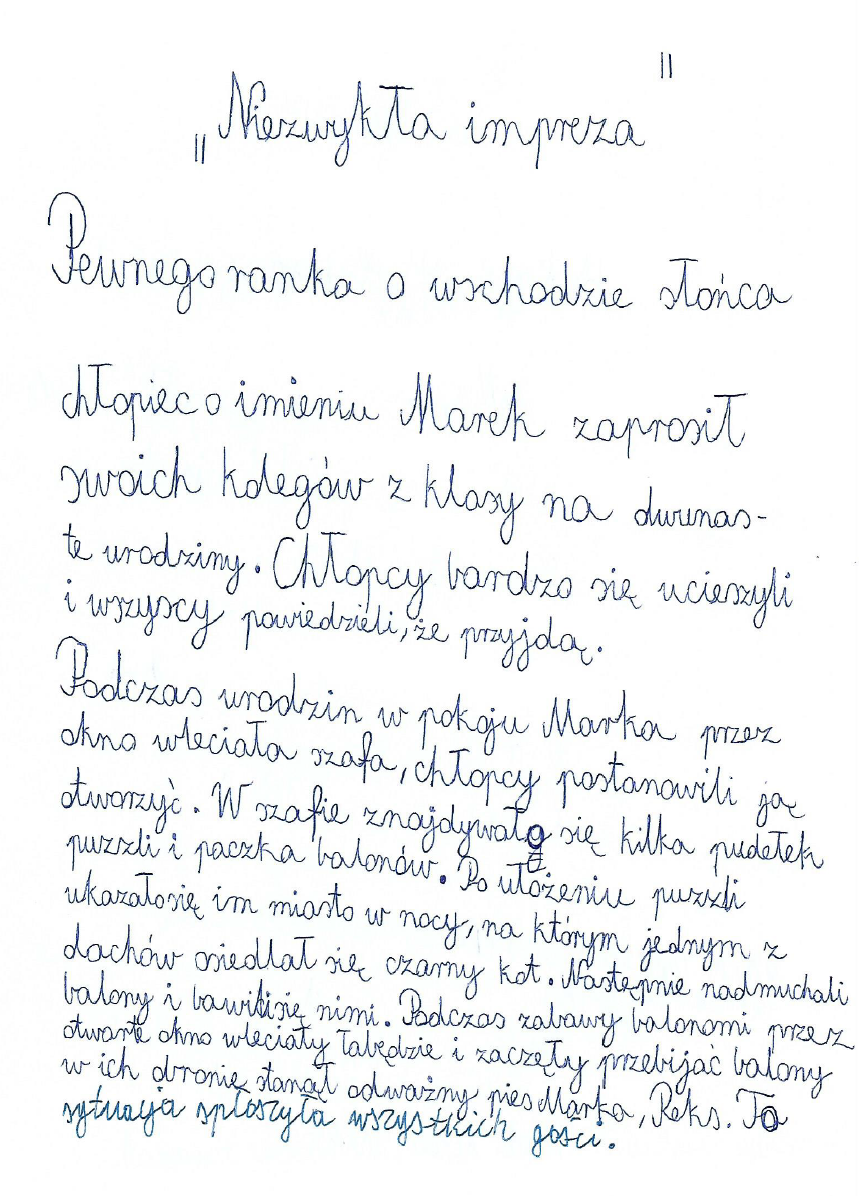 „Niezwykła impreza"
Pewnego ranka o wschodzie słońca
chłopiec o imieniu Marek zaprosił
swoich kolegów z klasy na dwunas-
te urodziny. Chłopcy bardzo się ucieszyli
i wszyscy powiedzieli, że przyjdą.
Podczas urodzin w pokoju Marka przez
okno wleciała szafa, chłopcy postanowili ją
otworzyć. W szafie znajdywało się kilka pudełek
puzzli i paczka balonów. Po ułożeniu puzzli
ukazało się im miasto w nocy, na którym jednym z
dachów osiedlał się czarny kot. Następnie nadmuchali
balony i bawili się nimi. Podczas zabawy balonami przez
otwarte okno wleciały łabędzie i zaczęły przebijać balony
w ich obronie stanął odważny pies Marka, Reks. Ta
sytuacja spłoszyła wszystkich gości.